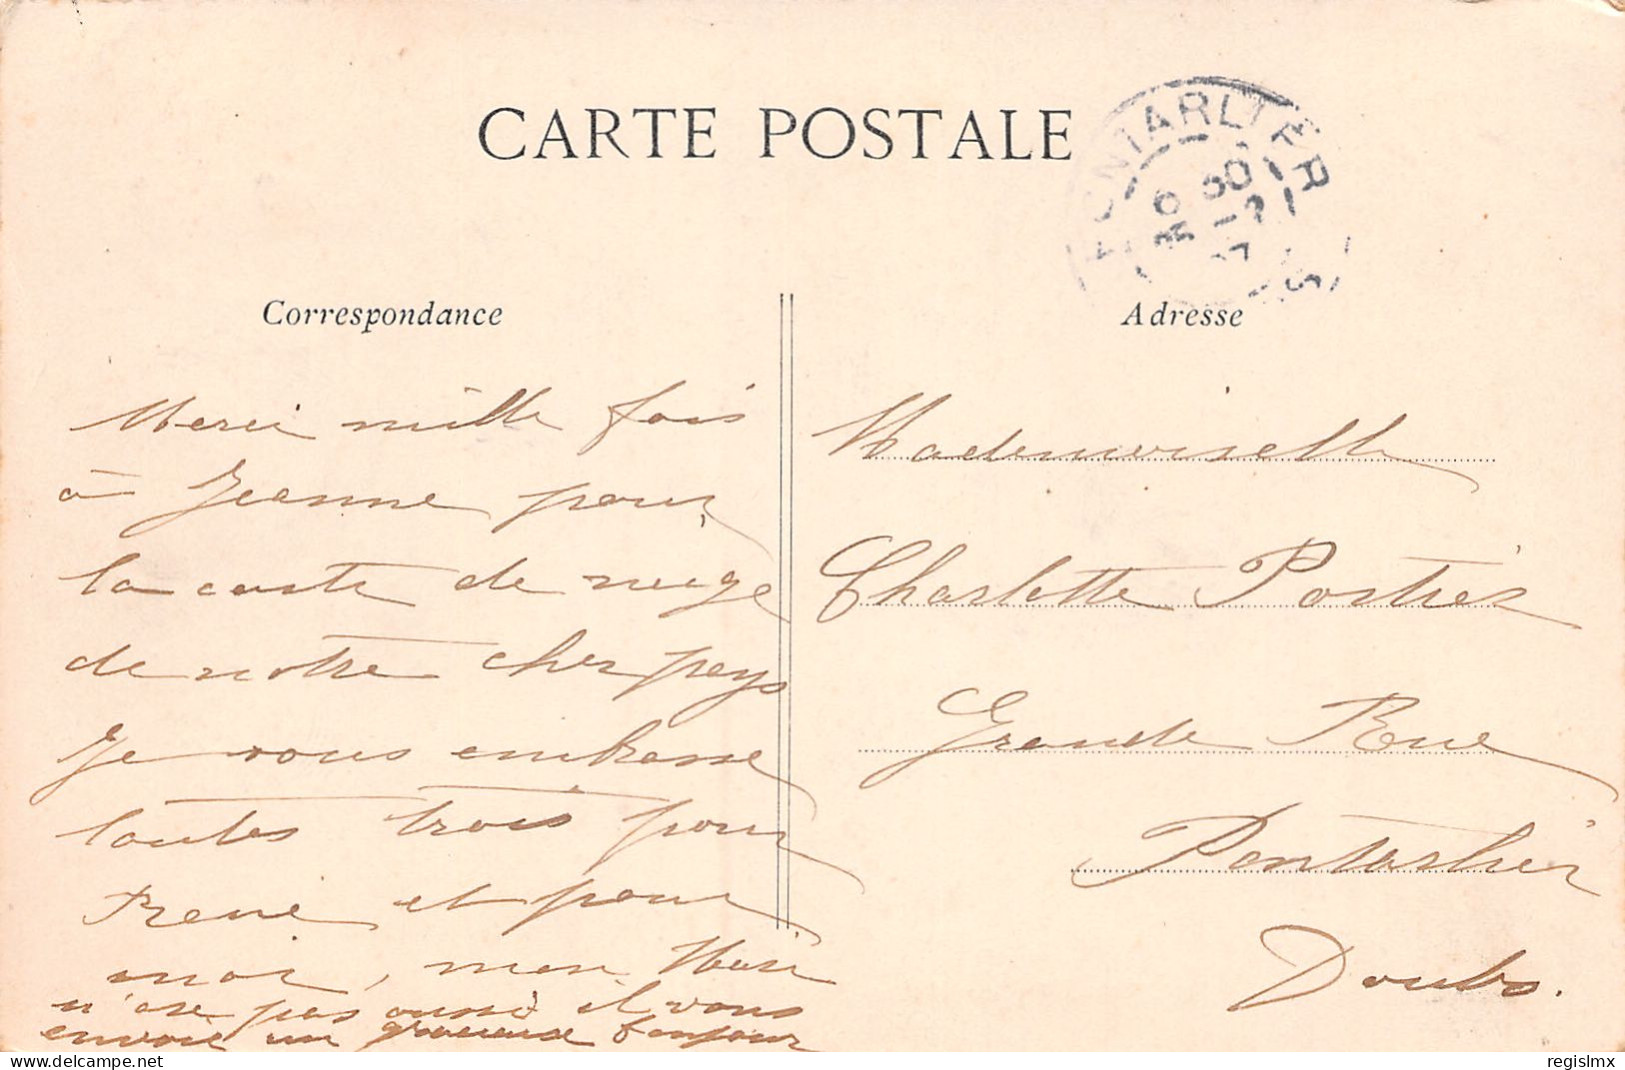 CARTE POSTALE
PONTARLIER
Correspondance
Adresse
Merci mille fois
à Jeanne pour
la carte de neige
de notre cher pays
Je vous embrasse
toutes trois pour
et pour
moi, mon Mari
n'ose pas aussi il vous
envoie un gracieux bonjour
Mademoiselle
Charlotte Portier
Grande Rue
Pontarlier
Doubs.
www.delcampe.net
regislmx